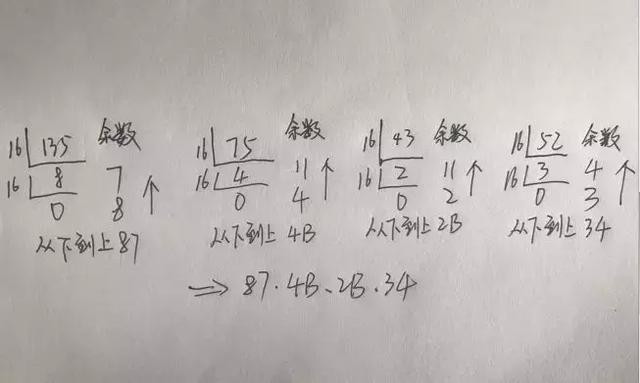 16 135 余数
16 8 7
0 8 ↑
从下到上 87
16 75 余数
16 4 11
0 4 ↑
从下到上 4B
16 43 余数
16 2 11
0 2 ↑
从下到上 2B
16 52 余数
16 3 4
0 3 ↑
从下到上 34
⇒ 87.4B.2B.34